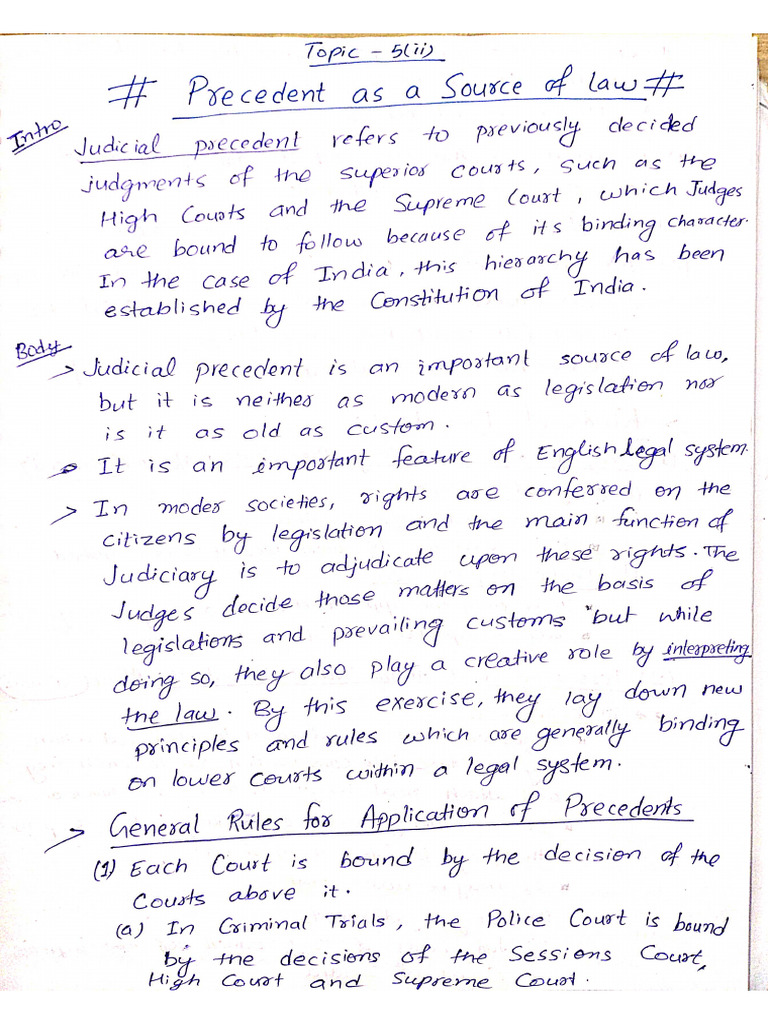 Topic - 5(ii)
# Precedent as a Source of law #
Intro
Judicial precedent refers to previously decided
judgments of the superior courts, such as the
High Courts and the Supreme Court, which Judges
are bound to follow because of its binding character.
In the case of India, this hierarchy has been
established by the Constitution of India.
Body
> Judicial precedent is an important source of law,
but it is neither as modern as legislation nor
is it as old as custom.
> It is an important feature of English legal system.
> In moder societies, rights are conferred on the
citizens by legislation and the main function of
Judiciary is to adjudicate upon these rights. The
Judges decide those matters on the basis of
legislations and prevailing customs but while
doing so, they also play a creative role by interpreting
the law. By this exercise, they lay down new
principles and rules which are generally binding
on lower courts within a legal system.
> General Rules for Application of Precedents
(1) Each Court is bound by the decision of the
Courts above it.
(a) In Criminal Trials, the Police Court is bound
by the decisions of the Sessions Court,
High Court and Supreme Court.